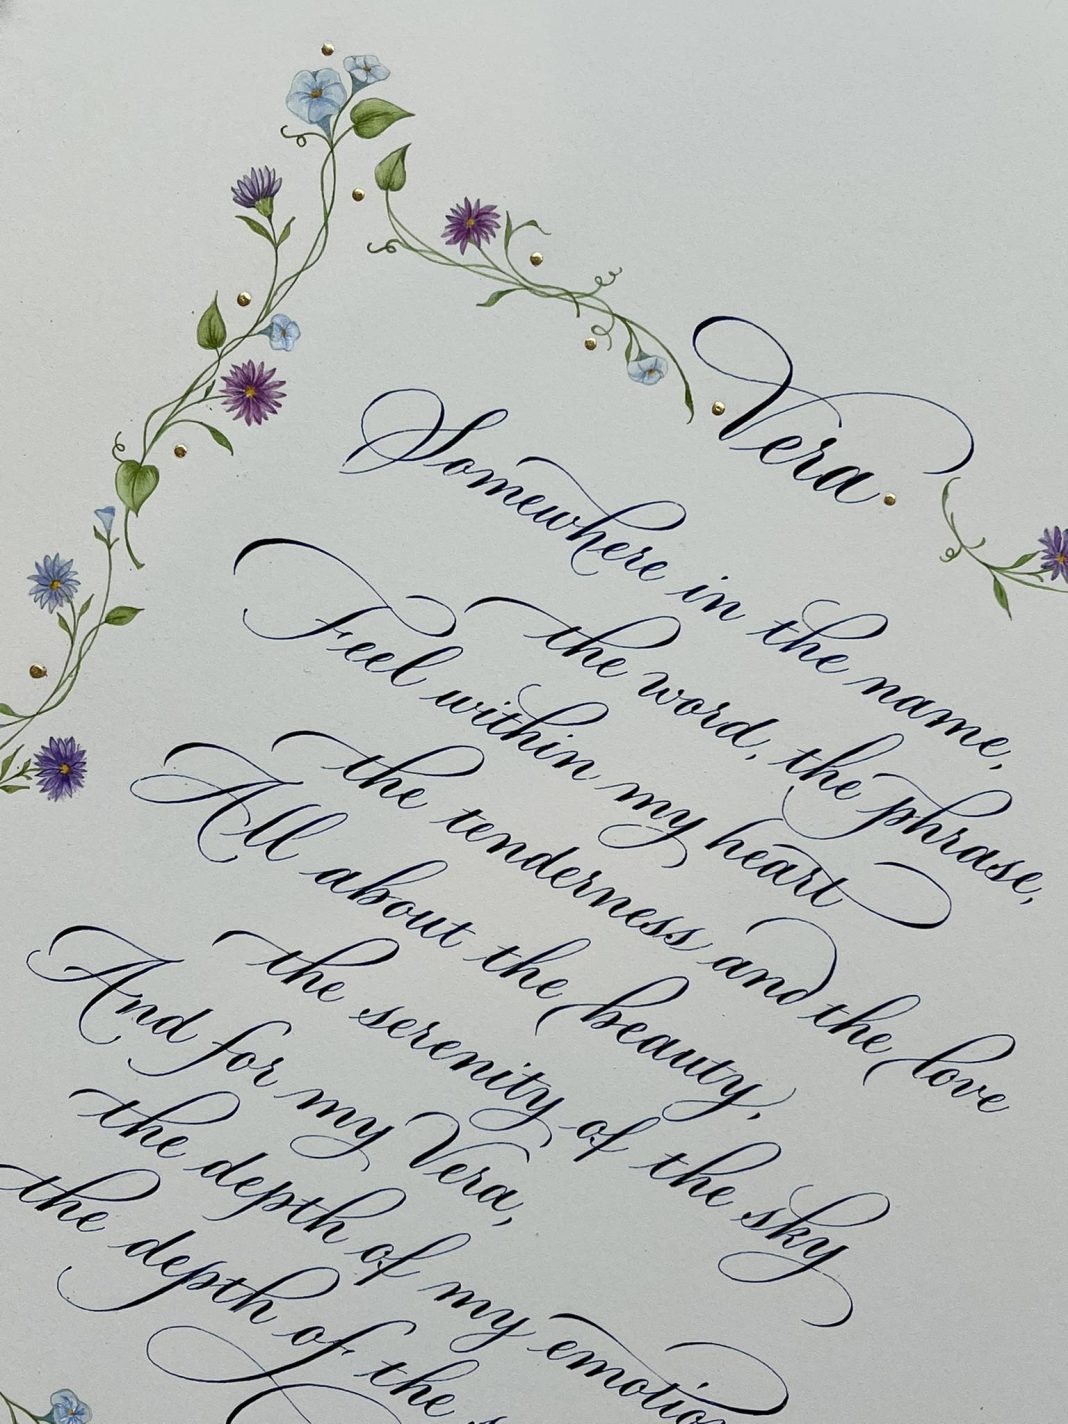 Vera
Somewhere in the name,
the word, the phrase,
Feel within my heart
the tenderness and the love
All about the beauty,
the serenity of the sky
And for my Vera,
the depth of my
the depth of the